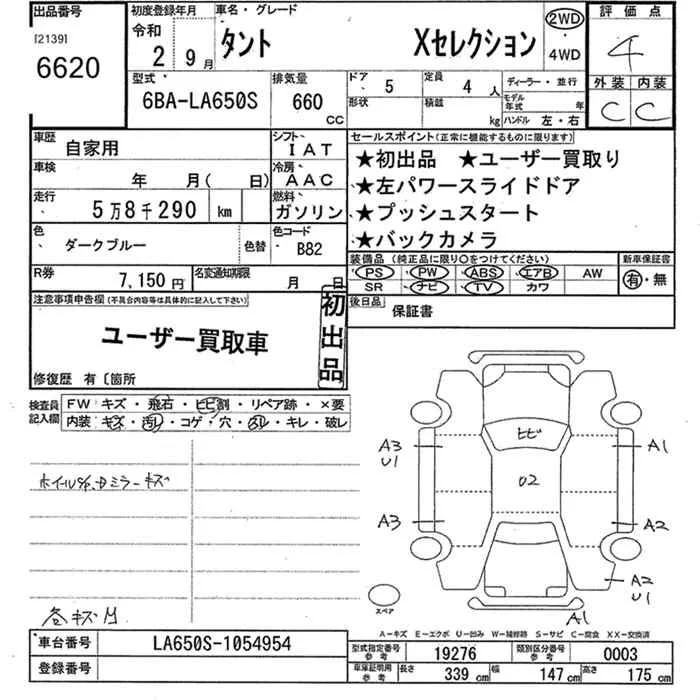 出品番号 初度登録年月 車名・グレード 評価点
[2139] 令和 2 9月 タント Xセレクション 2WD・4WD 4
6620 型式 排気量 ドア 5 定員 4人 ディーラー・並行 外装 内装
6BA-LA650S 660cc 形状 積載 kg モデル年式 年 ハンドル 左・右 C C
車歴 自家用 シフト IAT セールスポイント(正常に機能するものに限ります)
車検 年 月( 日) 冷房 AAC ★初出品 ★ユーザー買取り
走行 5万8千290 km 燃料 ガソリン ★左パワースライドドア
★プッシュスタート
色 ダークブルー 色替 色コード B82 ★バックカメラ
装備品(純正品に限り○をつけてください) 新車保証書
R券 7,150円 名変通知期限 月 日 PS PW ABS エアB AW 有・無
SR ナビ TV カワ
注意事項申告欄(不具合内容等は具体的に記入して下さい) 初出品 後日品 保証書
ユーザー買取車
修復歴 有〔箇所
検査員記入欄 FW キズ・飛石・ヒビ割・リペア跡・×要
内装 キズ・汚レ・コゲ・穴・凹レ・キレ・破レ
ヒビ
A3 U1 A1
02
A3 A2
A2 U1
スペア A1
各キズM
A-キズ E-エクボ U-凹み W-補修跡 S-サビ C-腐食 XX-交換済
車台番号 LA650S-1054954 型式指定番号 参考 19276 類別区分番号 参考 0003
登録番号 車庫証明用 参考 長さ 339cm 幅 147cm 高さ 175cm